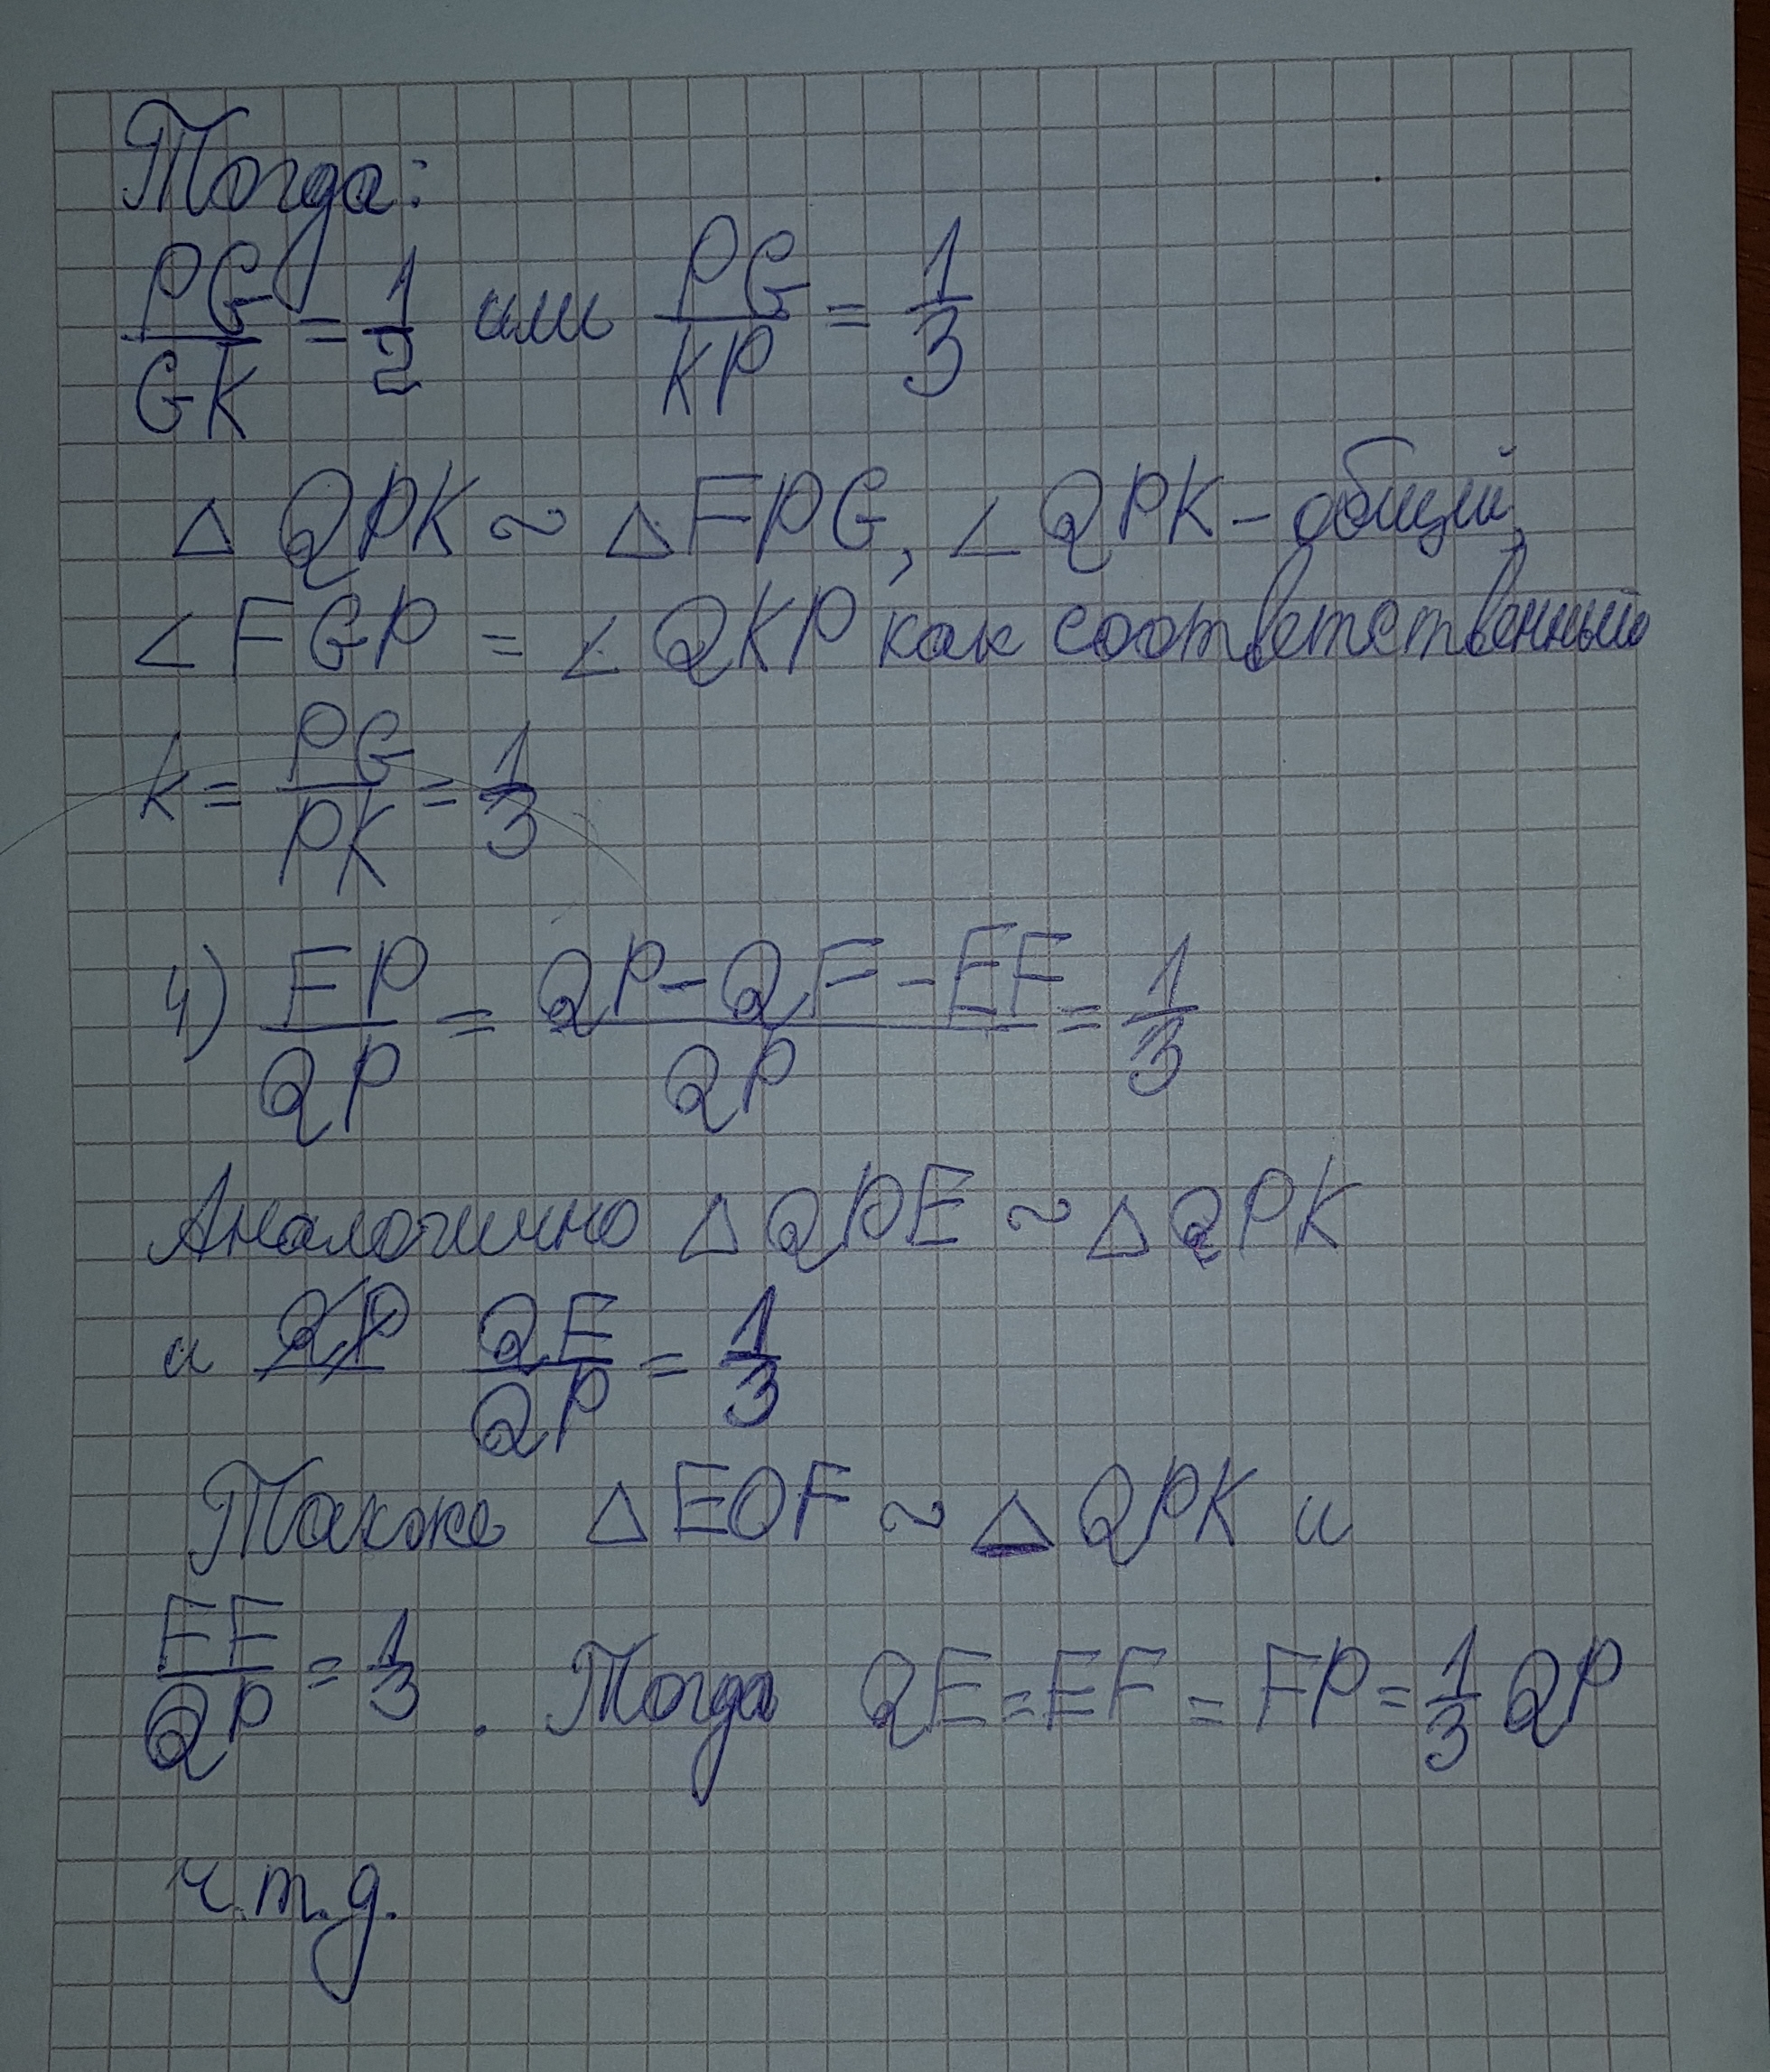 Тогда:
PG/GK = 1/2 или PG/KP = 1/3
△ QPK ~ △ FPG, ∠ QPK - общий,
∠ FGP = ∠ QKP как соответственный
k = PG/PK = 1/3
4) FP/QP = (QP - QF - EF)/QP = 1/3
Аналогично △ QPE ~ △ QPK
и QE/QP = 1/3
Также △ EOF ~ △ QPK и
EF/QP = 1/3. Тогда QE = EF = FP = 1/3 QP
ч.т.д.